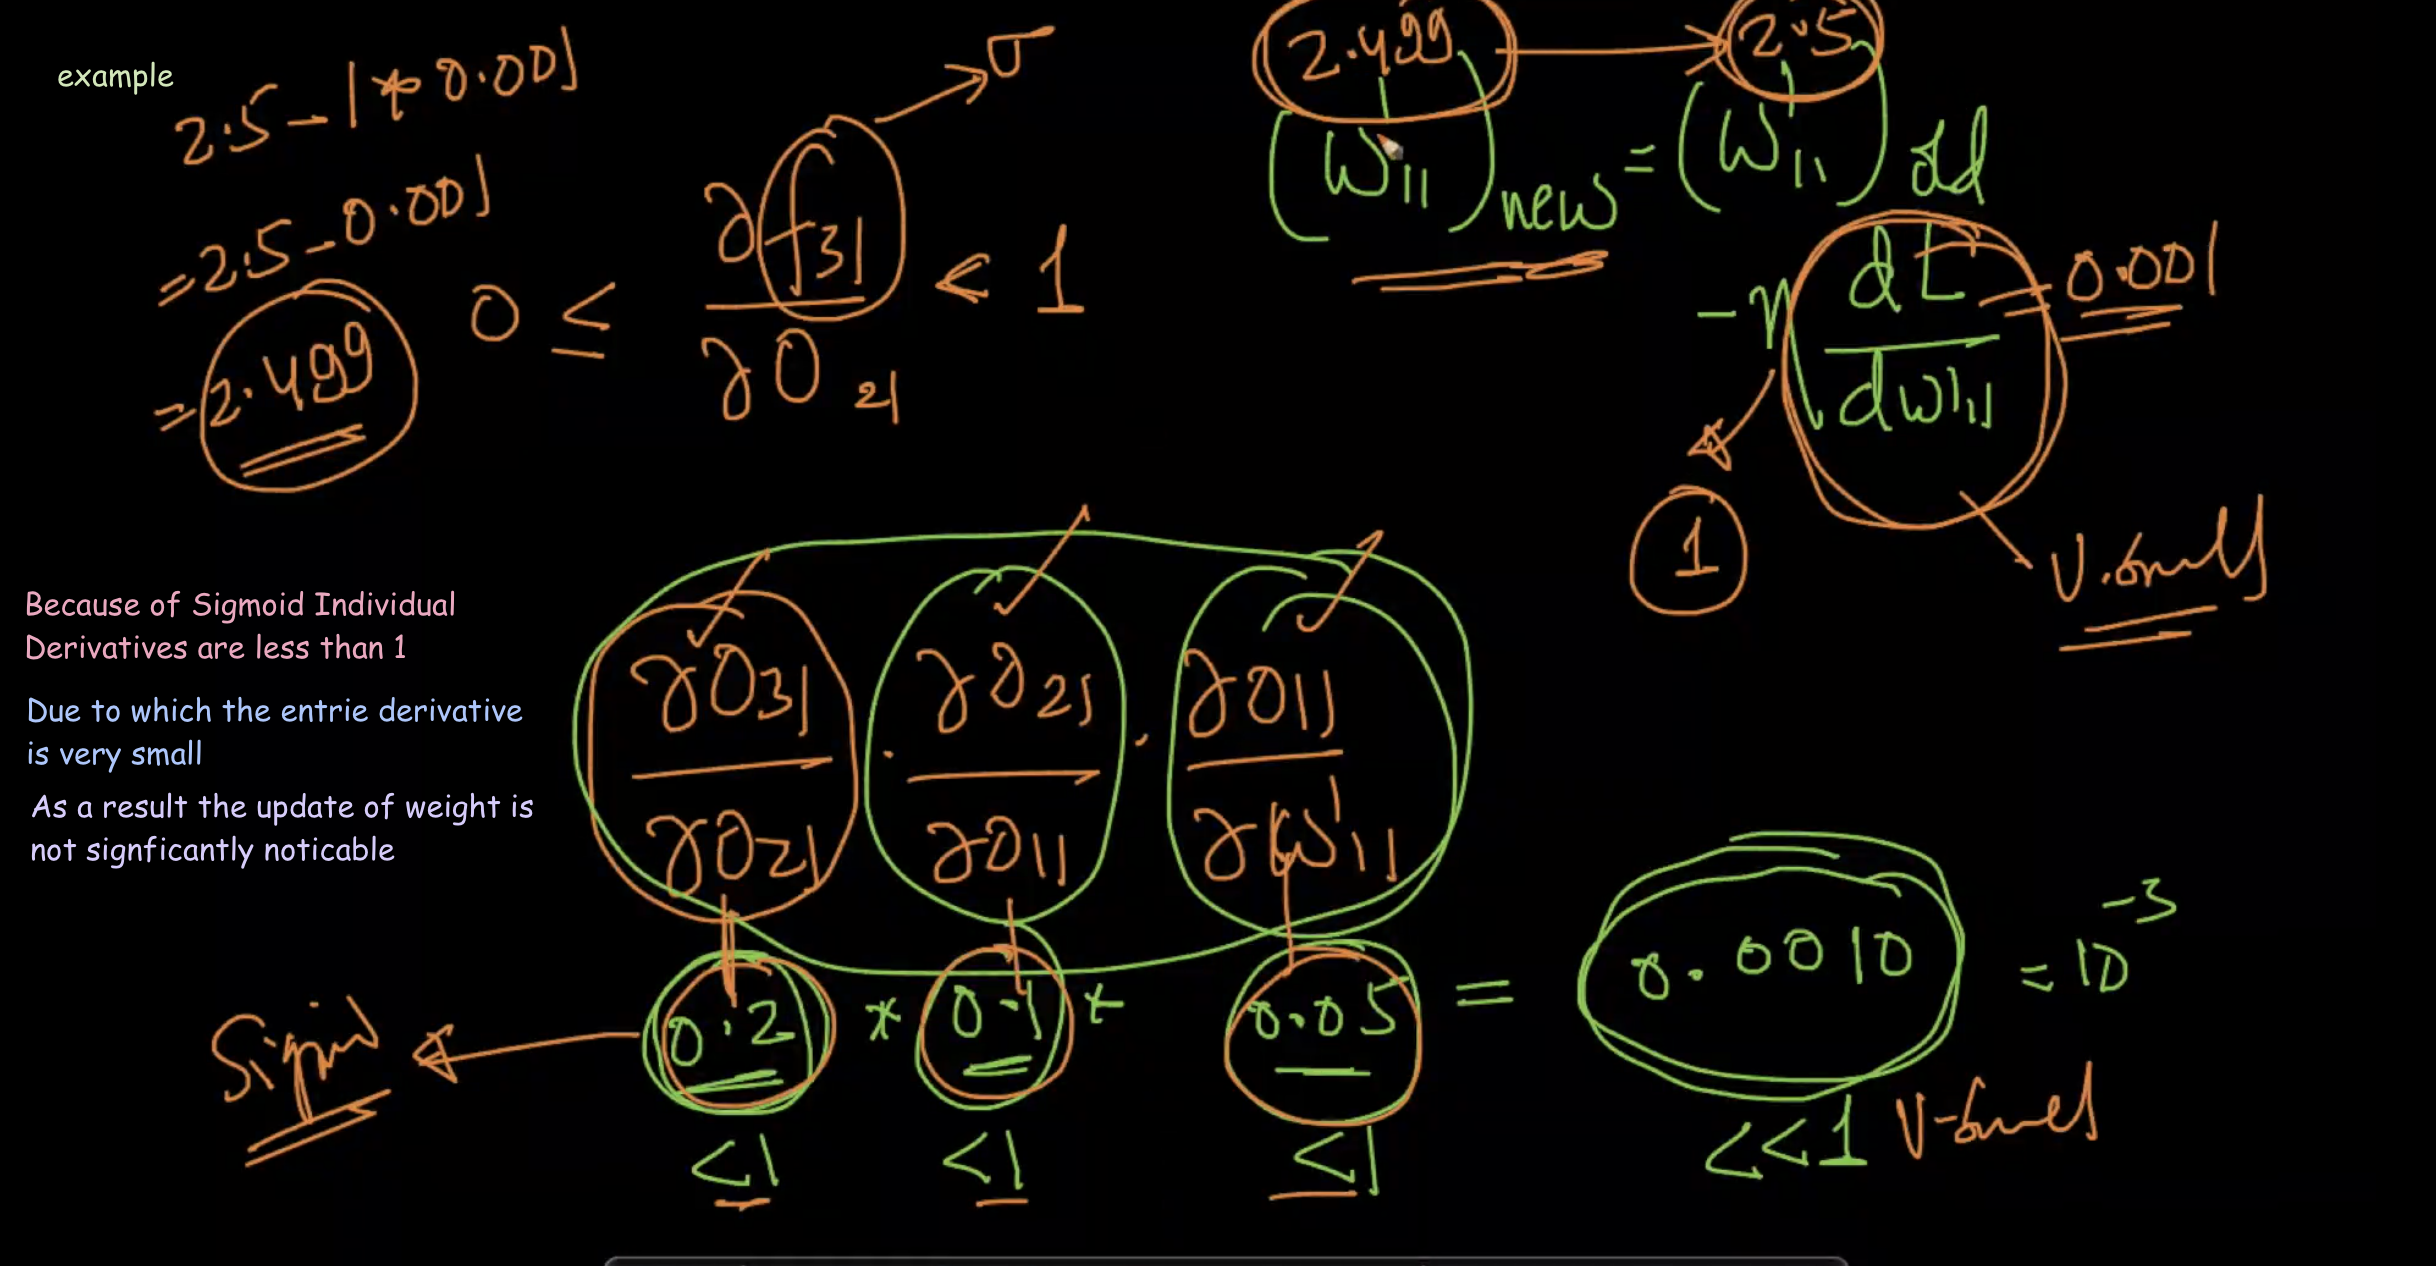 example
2.5 - 1 * 0.001
= 2.5 - 0.001
= 2.499
0 ≤ ∂f31 / ∂O21 < 1
σ
2.499 → 2.5
(W11)new = (W11)old
- η dL / dW'11 = 0.001
1
V.small
Because of Sigmoid Individual
Derivatives are less than 1
Due to which the entrie derivative
is very small
As a result the update of weight is
not signficantly noticable
∂O31 / ∂O21 . ∂O21 / ∂O11 . ∂O11 / ∂W'11
Sigmoid ← 0.2 * 0.1 * 0.05 = 0.0010 = 10⁻³
<1 <1 <1 <<1 V-small